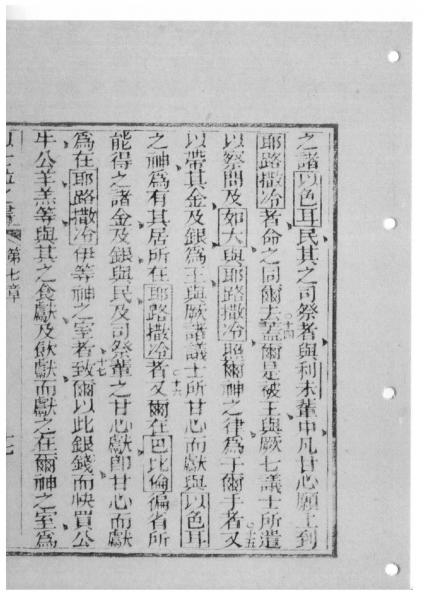 之諸以色耳民其之司祭者與利未輩中凡甘心願上到
耶路撒冷者命之同爾去 十四 蓋爾是被王與厥七議士所遣
以察問及如大與耶路撒冷照爾神之律為于爾手者又 十五
以帶其金及銀為王與厥諸議士所甘心而獻與以色耳
之神為有其居所在耶路撒冷者 十六 又爾在巴比倫偏省所
能得之諸金及銀與民及司祭輩之甘心獻即甘心而獻
為在耶路撒冷伊等神之室者 十七 致爾以此銀錢而快買公
牛公羊羔等與其之食獻及飲獻而獻之在爾神之室為
第七章